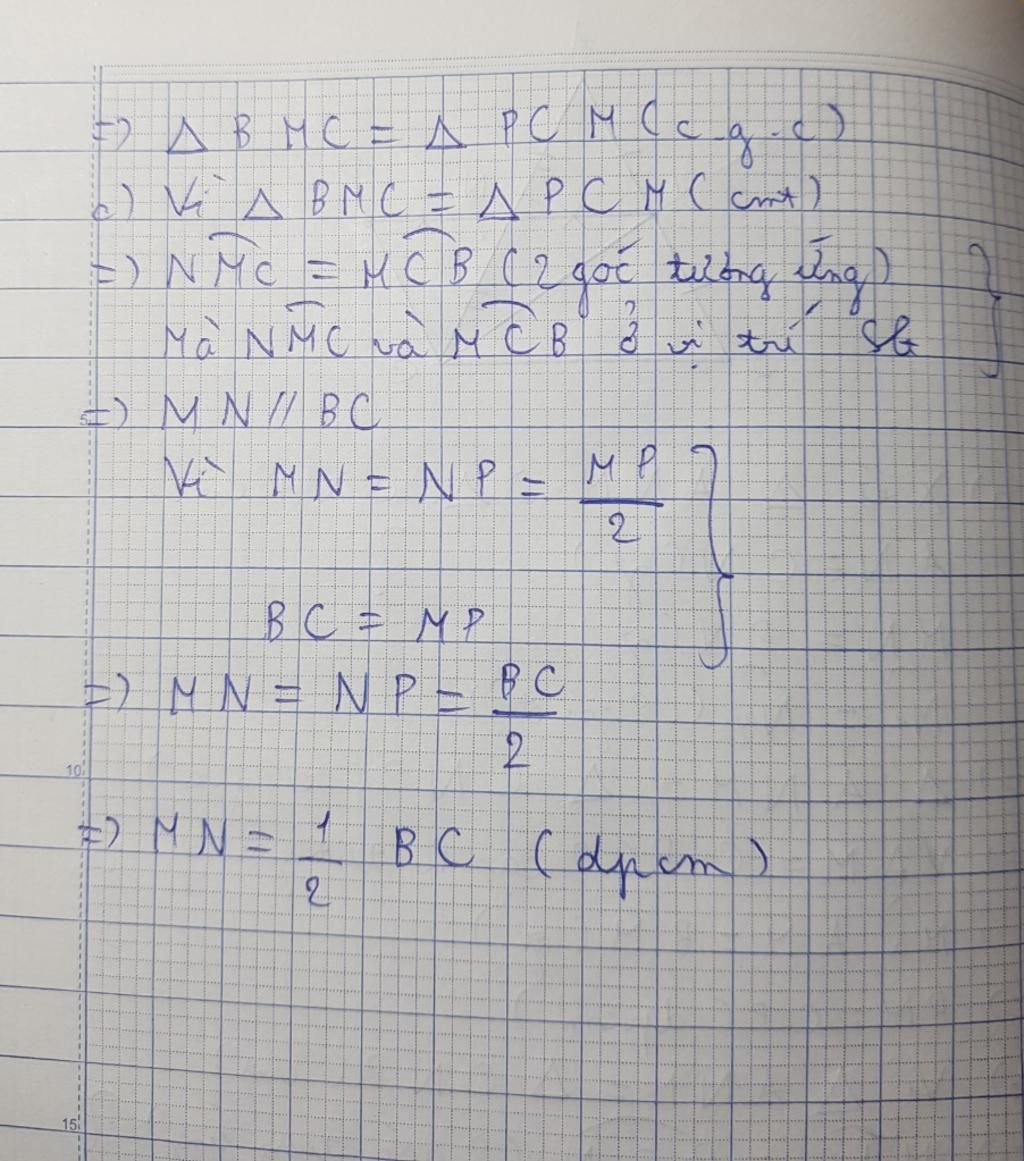 =) Δ BMC = Δ PCM (c.g.c)
c) Vì Δ BMC = Δ PCM (cmt)
=) NM̂C = MĈB (2 góc tương ứng)
Mà NM̂C và MĈB ở vị trí slt
=) MN // BC
Vì MN = NP = MP/2
BC = MP
=) MN = NP = BC/2
10
=) MN = 1/2 BC (dpcm)
15